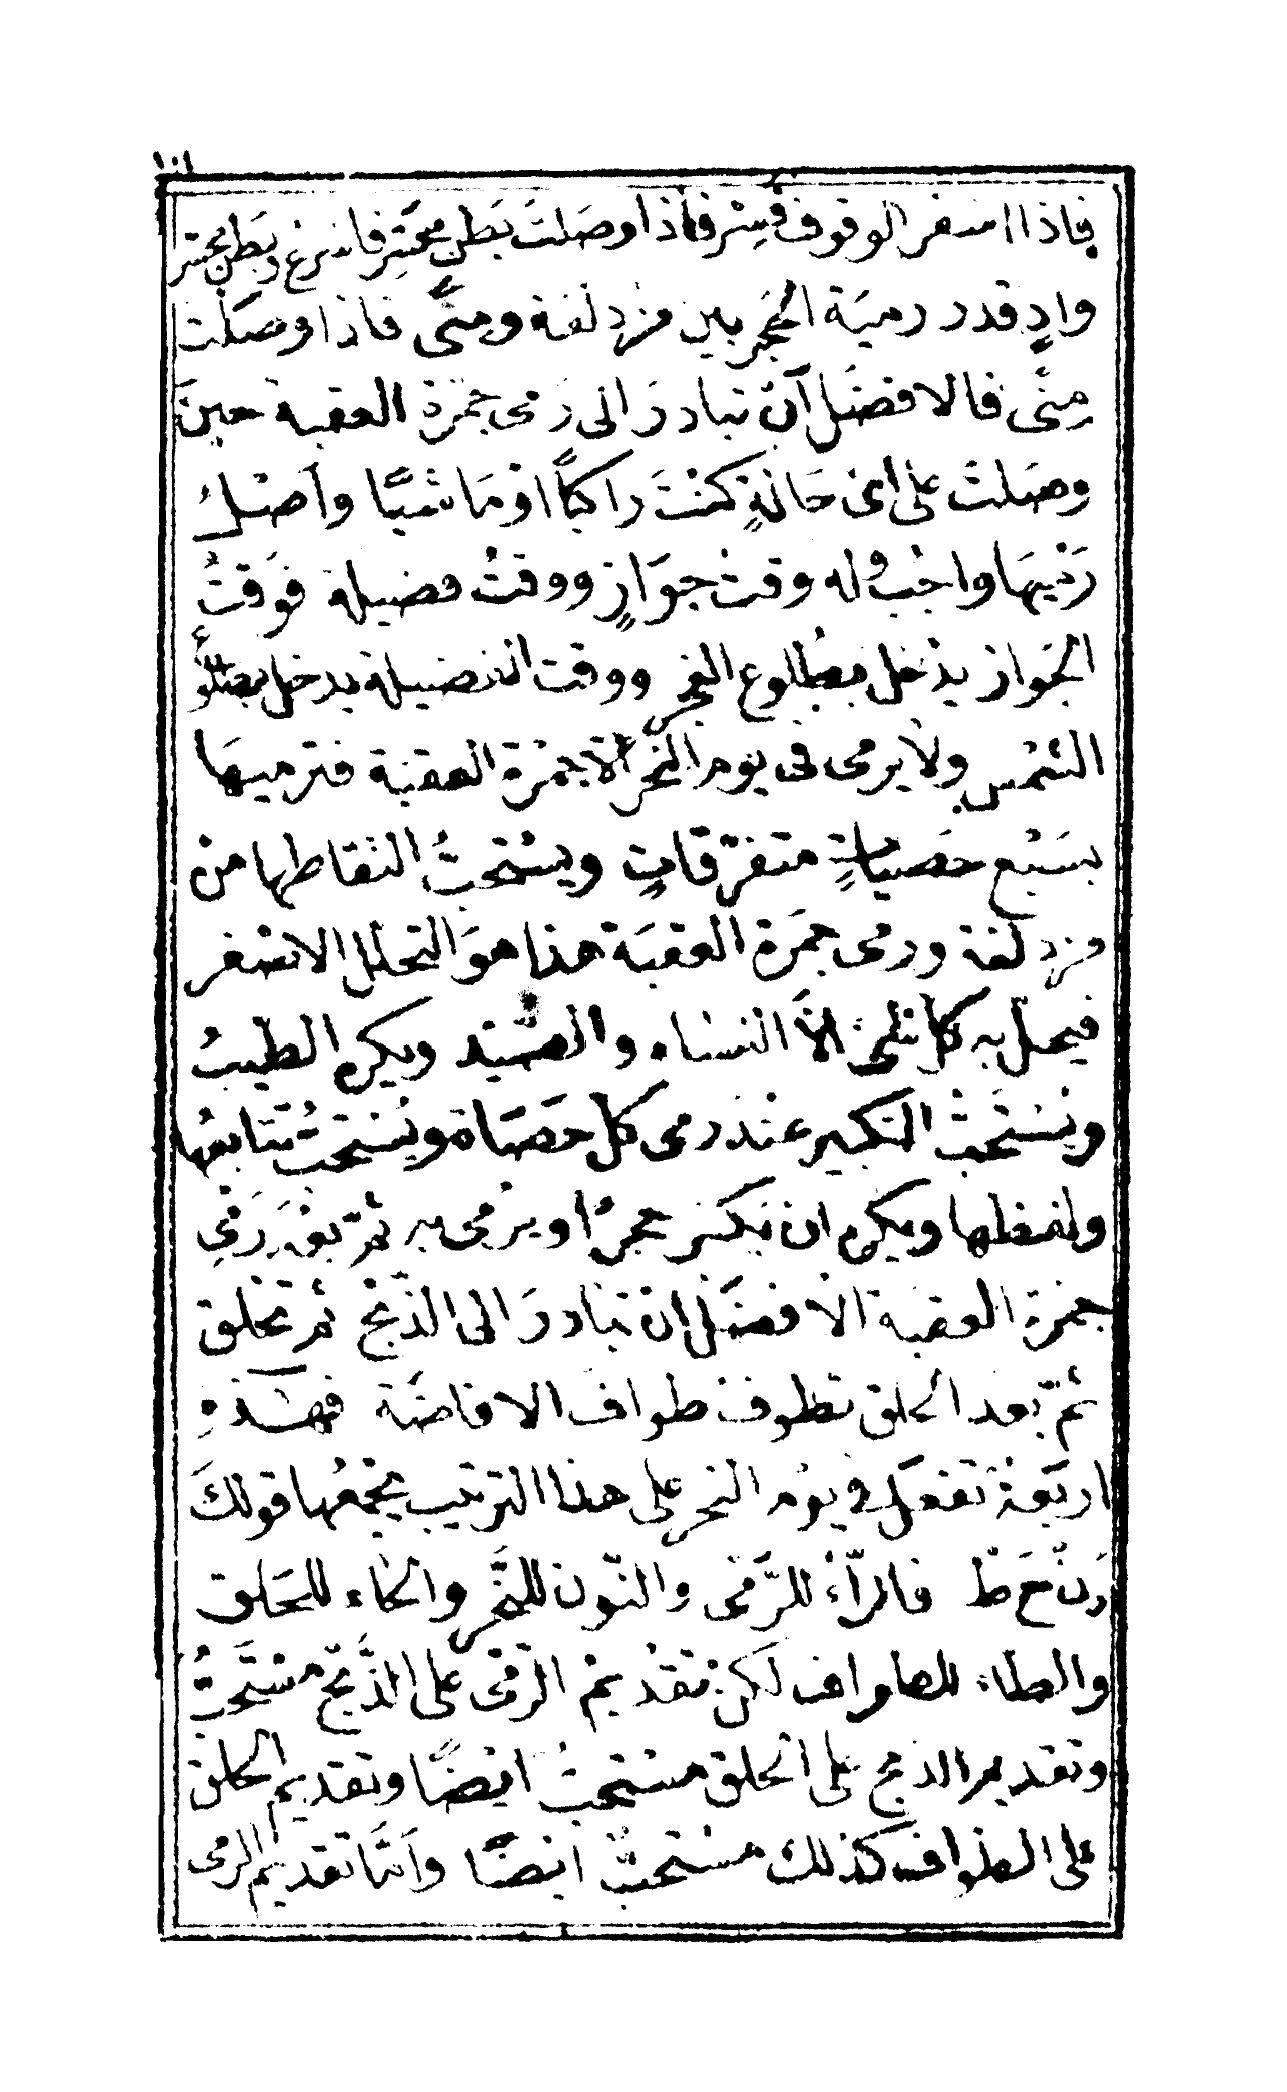 ١٠١
فاذا اسفر الوقوف فسِرْ فاذا وصَلتَ بَطن محَسِّر فاسْرِعْ وبَطن محسّر
وادٍ قدر رميَة الحجَر بين مزدلفة ومنًى فاذا وصَلْت
مِنًى فالافضَل أنْ تبادرَ الى رَمى جمْرة العقبة حينَ
وصَلتَ على اى حَالةٍ كنْتَ راكبًا اوْ مَاشيًا وأصْل
رَمْيِهَا واجُب وله وقت جوَازٍ ووقتُ فضيلة فوَقتُ
الجَواز يدْخل بطُلوع الفجر ووقت الفضيلة يدخل بطلوع
الشمْس ولا يرمى فى يوم النحر الّا جمْرة العقبَة فترميهَا
بسَبْع حَصيَاتٍ متفرّقاتٍ ويسْتحبُّ التقاطها منْ
مزدلفة ورمى جمَرة العقبَة هذا هوَ التحلل الاصْغر
فيحلّ به كل شئ الاَّ النسَاء والصَّيْد ويكره الطيبُ
ويُسْتَحَبُّ التكبير عنْدَ رمى كلّ حَصَاة ويُسْتحبُّ تتابعُها
ولفظها ويكره ان يكسَر حجرًا ويرْمى به ثمّ بعْدَ رَمْى
جمْرَة العقبَة الافضَل انْ تبادرَ الى الذّبْح ثم تحْلق
ثمّ بعد الحلق تطوفُ طوافَ الافاضَة فهَذهِ
اربَعةٌ تفعَل في يوْم النحر على هذا الترتيب يجْمعُها قولكَ
رَنْحَطْ فالرّاءُ للرَّمْى والنّون للنَّحْر والحَاء للحَلق
والطاء للطواف لكنْ تقْديمُ الرّمْى على الذَّبْح مسْتَحَبُّ
وتقديم الذبح على الحلق مسْتحبُّ ايضًا وتقديم الحلق
على الطواف كذلك مسْتحبُّ ايضًا وأمَّا تقديم الرمى